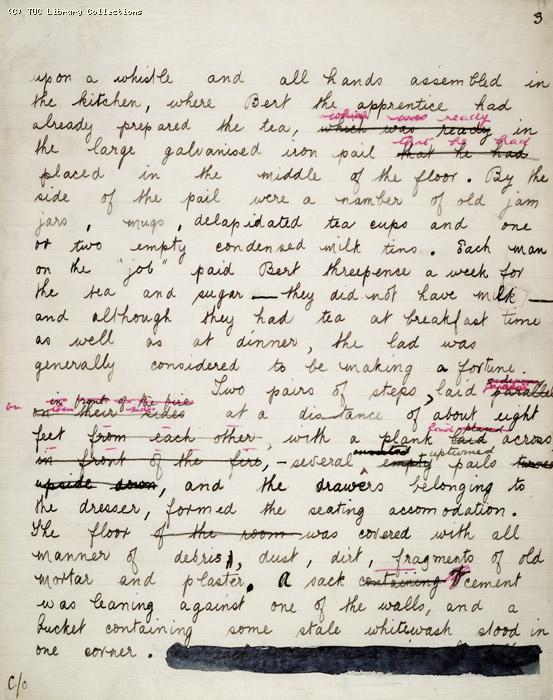 (C) TUC Library Collections
3
upon a whistle and all hands assembled in
the kitchen, where Bert the apprentice had
which was ready
already prepared the tea, which was ready in
that he had
the large galvanised iron pail that he had
placed in the middle of the floor. By the
side of the pail were a number of old jam
jars, mugs, delapidated tea cups and one
or two empty condensed milk tins. Each man
on the "job" paid Bert threepence a week for
the tea and sugar — they did not have milk —
and although they had tea at breakfast time
as well as at dinner, the lad was
generally considered to be making a fortune.
in front of the fire
Two pairs of steps, laid parallel
on
on their sides at a distance of about eight
laid placed
feet from each other, with a plank laid across
inverted upturned
in front of the fire, - several empty pails turned
upside down, and the drawers belonging to
the dresser, formed the seating accomodation.
The floor of the room was covered with all
manner of debris, dust, dirt, fragments of old
mortar and plaster. A sack containing of cement
was leaning against one of the walls, and a
bucket containing some stale whitewash stood in
one corner.
C/o